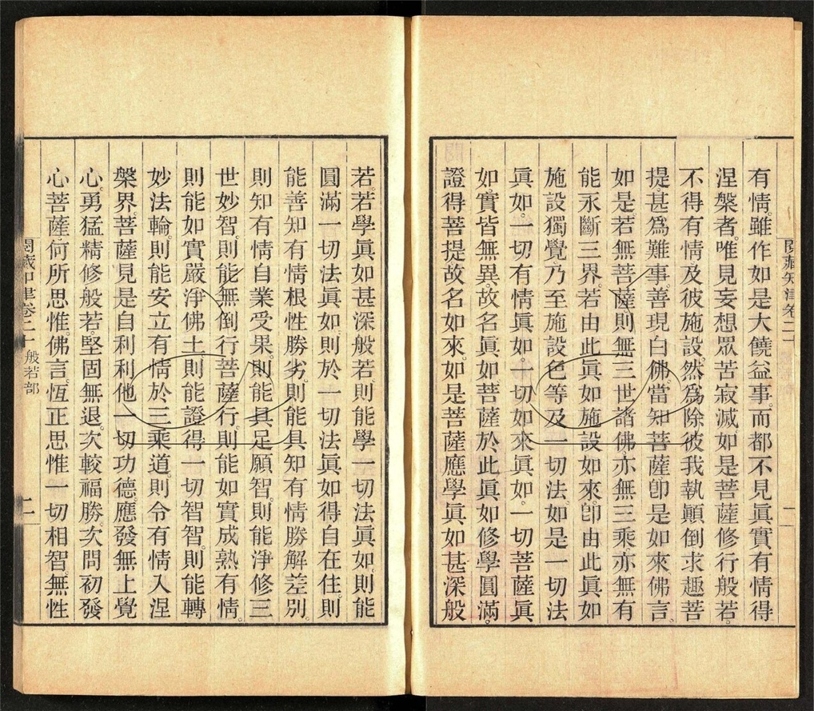 有情。雖作如是大饒益事。而都不見眞實有情得
涅槃者。唯見妄想眾苦寂滅如是菩薩修行般若。
不得有情及彼施設。然爲除彼我執顚倒求趣菩
提。甚爲難事。善現白佛。當知菩薩卽是如來。佛言。
如是。若無菩薩則無三世諸佛。亦無三乘。亦無有
能永斷三界。若由此眞如施設如來。卽由此眞如
施設獨覺乃至施設色等及一切法。如是一切法
眞如。一切有情眞如。一切如來眞如。一切菩薩眞
如。實皆無異。故名眞如。菩薩於此眞如修學圓滿。
證得菩提。故名如來。如是菩薩應學眞如甚深般
閱藏知津卷二十
一
若。若學眞如甚深般若。則能學一切法眞如。則能
圓滿一切法眞如。則於一切法眞如得自在住。則
能善知有情根性勝劣。則能具知有情勝解差別。
則知有情自業受果。則能具足願智。則能淨修三
世妙智。則能無倒行菩薩行。則能如實成熟有情。
則能如實嚴淨佛土。則能證得一切智智。則能轉
妙法輪。則能安立有情於三乘道。則令有情入涅
槃界。菩薩見是自利利他一切功德。應發無上覺
心。勇猛精修般若。堅固無退。次較福勝。次問初發
心菩薩何所思惟。佛言。恆正思惟一切相智無性
閱藏知津卷二十 般若部
二